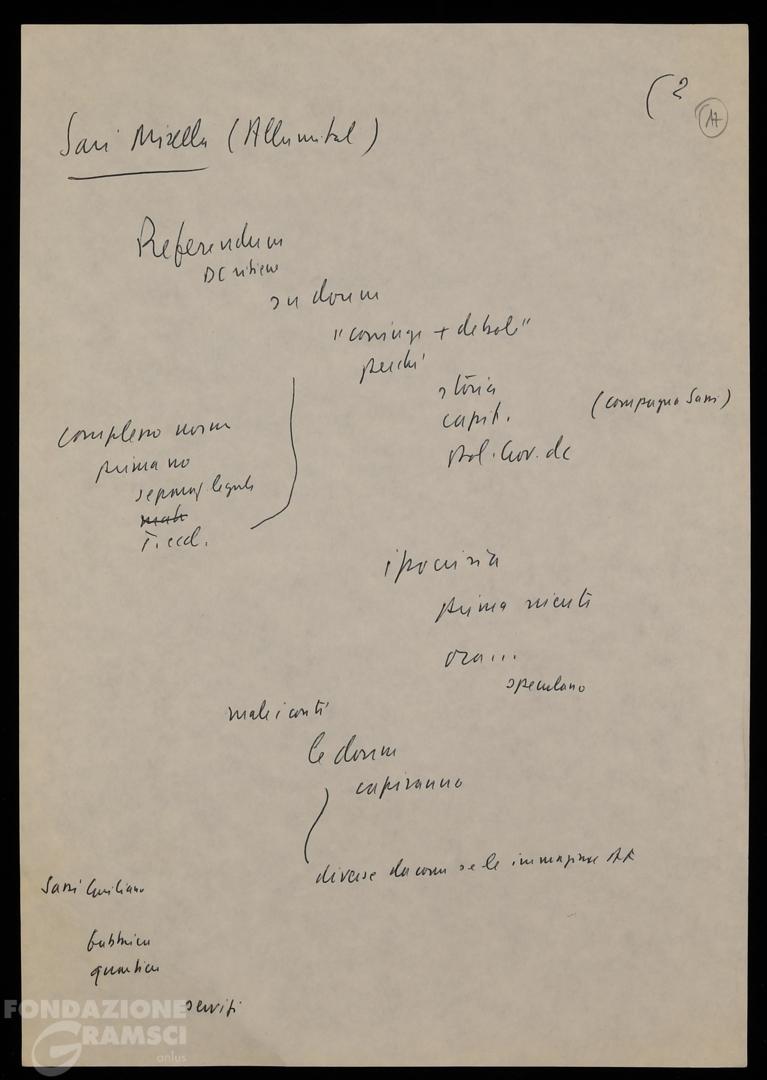 (2
17
Sassi Mirella (Allumital)
Referendum
DC ritiene
su donne
"coniuge + debole"
perché
storia
capit.
(compagna Sassi)
pol. Gov. dc
complesso norme
prima no
separaz legale
T. eccl.
ipocrisia
prima niente
ora...
speculano
male i conti
le donne
capiranno
diverse da come se le immagina AF
Sassi Emiliano
fabbrica
quartiere
servizi
FONDAZIONE
GRAMSCI
onlus